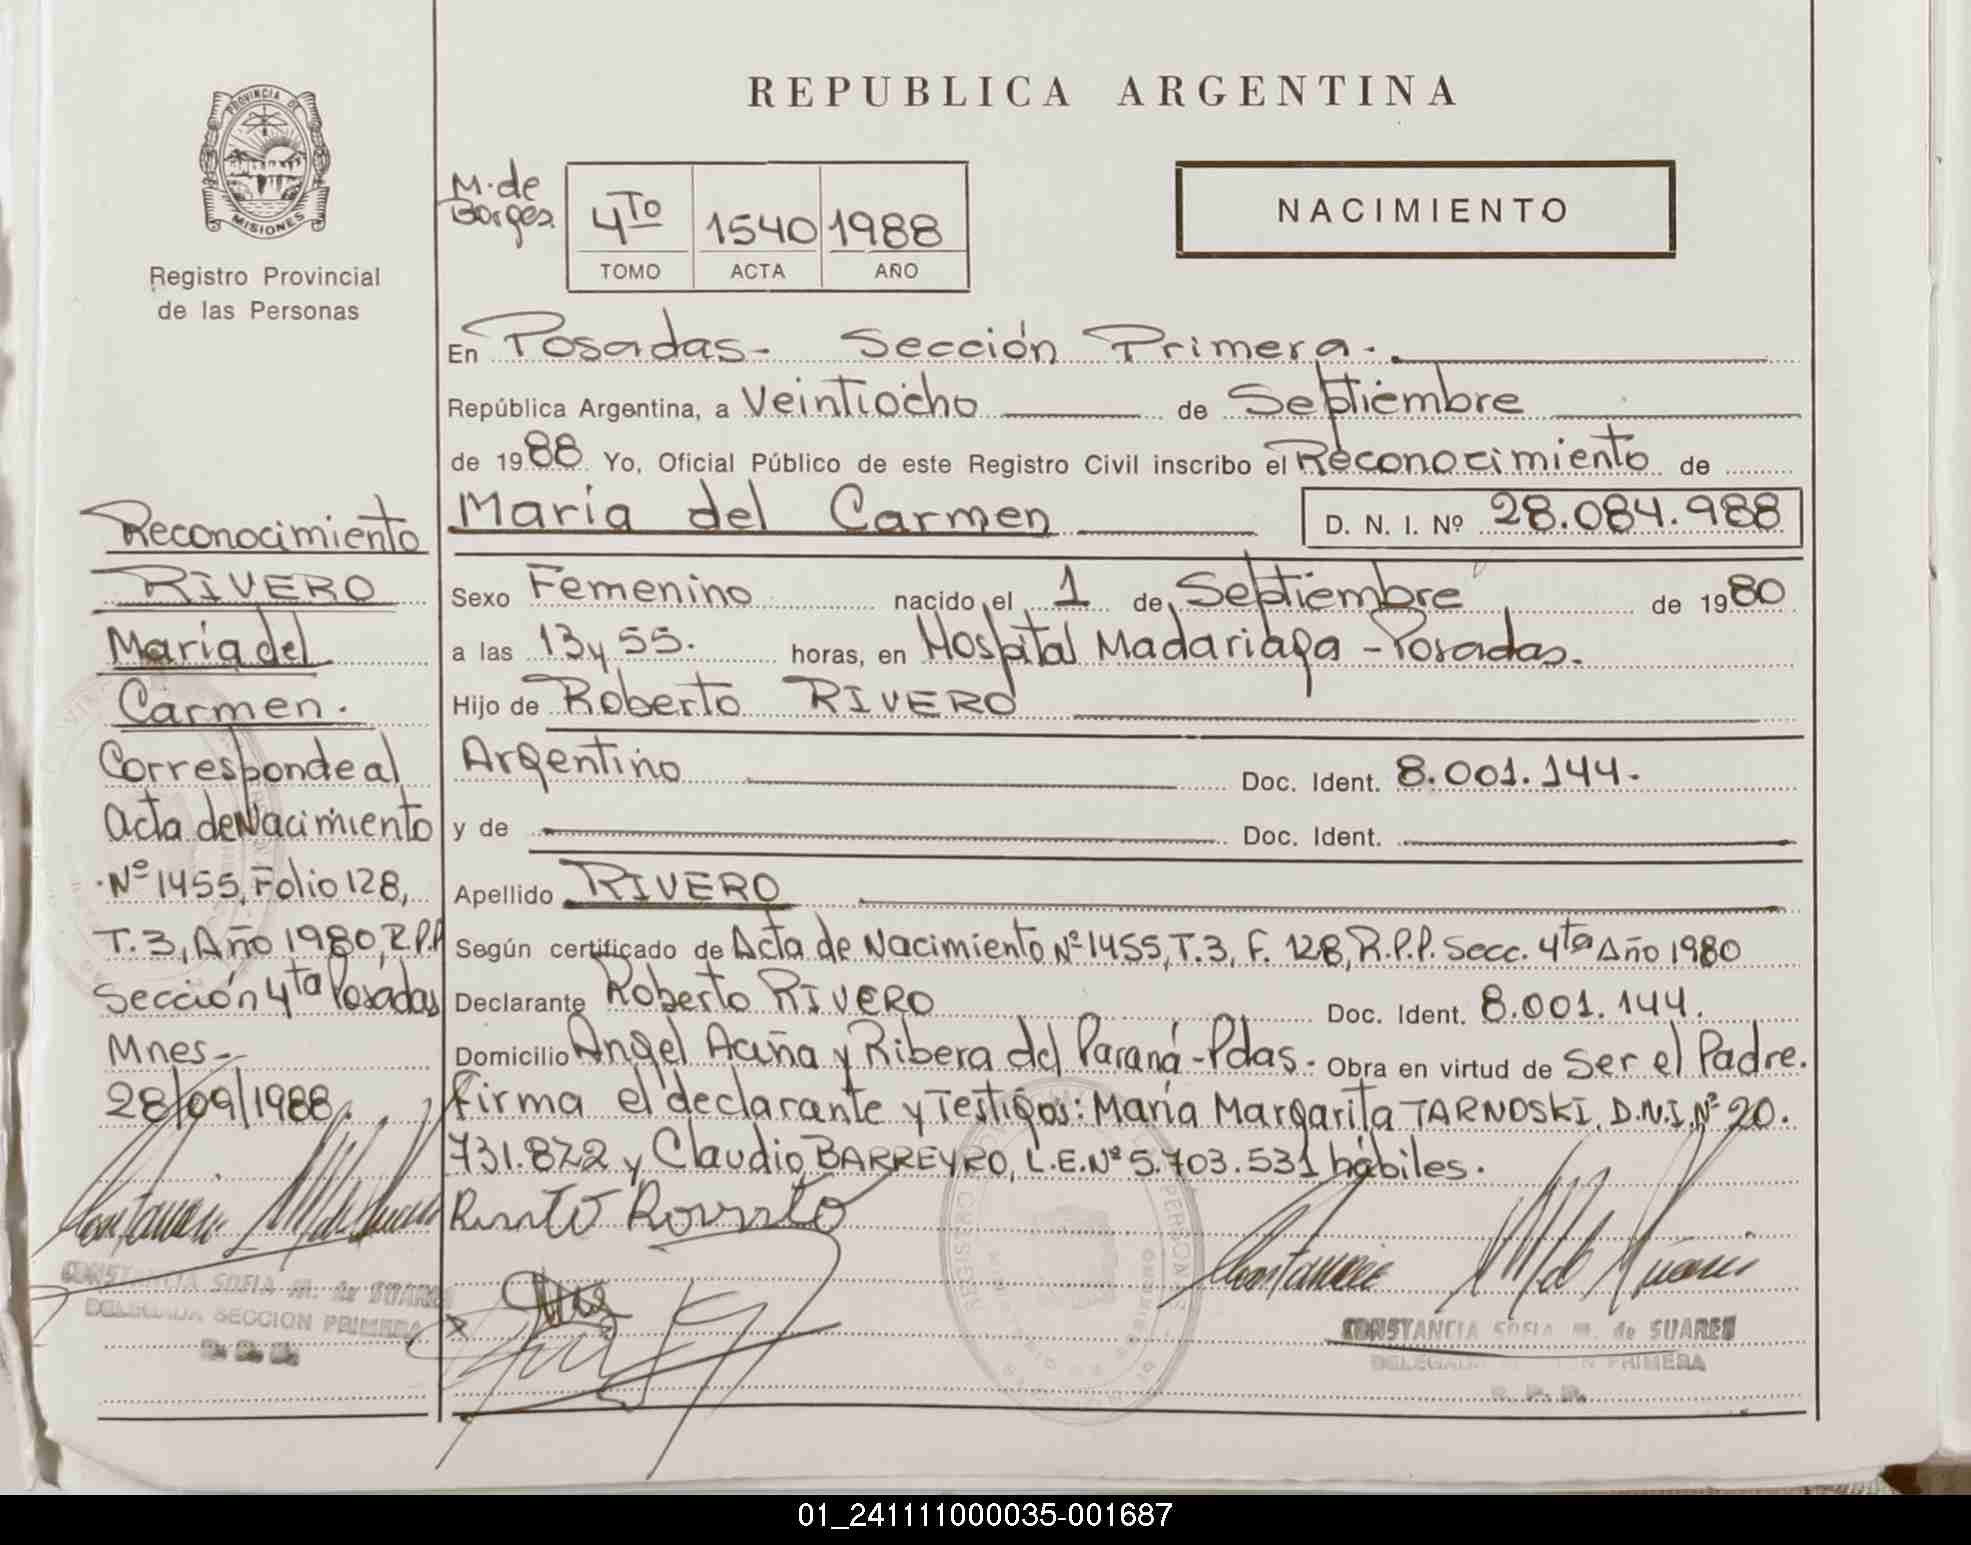 PROVINCIA DE
MISIONES
Registro Provincial
de las Personas
REPUBLICA ARGENTINA
M. de
Borges
4to 1540 1988
TOMO ACTA AÑO
NACIMIENTO
En Posadas- Sección Primera.
República Argentina, a Veintiocho de Septiembre
de 1988 Yo, Oficial Público de este Registro Civil inscribo el Reconocimiento de
María del Carmen D. N. I. Nº 28.084.988
Sexo Femenino nacido el 1 de Septiembre de 1980
a las 13 y 55. horas, en Hospital Madariaga - Posadas.
Hijo de Roberto RIVERO
Argentino Doc. Ident. 8.001.144.
y de Doc. Ident.
Apellido RIVERO
Según certificado de Acta de Nacimiento Nº 1455, T.3, F. 128, R.P.P. Secc. 4ta Año 1980
Declarante Roberto RIVERO Doc. Ident. 8.001.144.
Domicilio Angel Acuña y Ribera del Paraná - Pdas. Obra en virtud de Ser el Padre.
Firma el declarante y Testigos: María Margarita TARNOSKI, D.N.I. Nº 20.
731.872 y Claudio BARREYRO, L.E. Nº 5.703.531 hábiles.
CONSTANCIA SOFIA M. de SUAREZ
DELEGADA SECCION PRIMERA
R. P. P.
Reconocimiento
RIVERO
María del
Carmen.
Corresponde al
Acta de Nacimiento
Nº 1455, Folio 128,
T.3, Año 1980, R.P.P
Sección 4ta Posadas
Mnes-
28/09/1988.
CONSTANCIA SOFIA M. de SUAREZ
DELEGADA SECCION PRIMERA
01_241111000035-001687